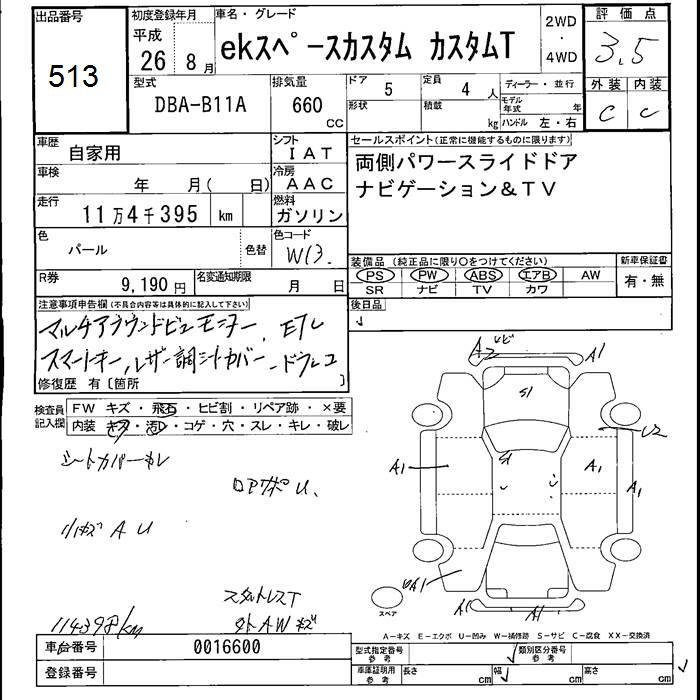 出品番号
513
初度登録年月
平成
26年
8月
車名・グレード
ekスペースカスタム カスタムT
2WD
・
4WD
評価点
3.5
外装 内装
C C
型式
DBA-B11A
排気量
660
CC
ドア
5
形状
定員
4人
積載
kg
ディーラー・並行
モデル年式
年
ハンドル 左・右
車歴
自家用
シフト
IAT
車検
年 月( 日)
冷房
AAC
走行
11万4千395 km
燃料
ガソリン
色
パール
色替
色コード
W13.
R券
9,190円
名変通知期限
月 日
セールスポイント(正常に機能するものに限ります)
両側パワースライドドア
ナビゲーション&TV
装備品 (純正品に限り○をつけてください)
PS PW ABS エアB AW
SR ナビ TV カワ
新車保証書
有・無
後日品
注意事項申告欄(不具合内容等は具体的に記入して下さい)
マルチアラウンドビューモニター、ETC
スマートキー、レザー調シートカバー、ドラレコ
修復歴 有〔箇所 〕
検査員記入欄
FW キズ・飛石・ヒビ割・リペア跡・×要
内装 キズ・汚レ・コゲ・穴・スレ・キレ・破レ
シートカバーキレ
ロアサポU、
リ小キズ A U
スタットレスT
外AWキズ
114398km
A2 A1
S1
U2
S1
A1 A1 A1
A1
A1 A1
スペア
A-キズ E-エクボ U-凹み W-補修跡 S-サビ C-腐食 XX-交換済
車台番号
0016600
登録番号
型式指定番号
参考
類別区分番号
参考
車庫証明用
参考
長さ cm
幅 cm
高さ cm